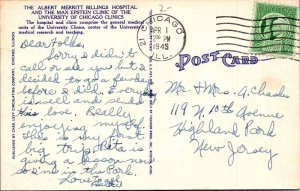 THE ALBERT MERRITT BILLINGS HOSPITAL
AND THE MAX EPSTEIN CLINIC OF THE
UNIVERSITY OF CHICAGO CLINICS
The hospital and clinic comprise the general medical
units of the University Clinics, center of the University's
medical research and teaching.
Dear Folks,
Sorry I didn't
call or send but I
decided to go a few days
before I did. Everyone
is well and sends
his love. Really
enjoying myself
this is my first
big trip. Rita is
giving a lesson now
so I'm in the Park.
Love to all
PUBLISHED BY
CHICAGO
APR 1
1 PM
1945
ILL.
POST CARD
Mr. + Mrs. A. Chaske
119 N. 10th Avenue
Highland Park
New Jersey